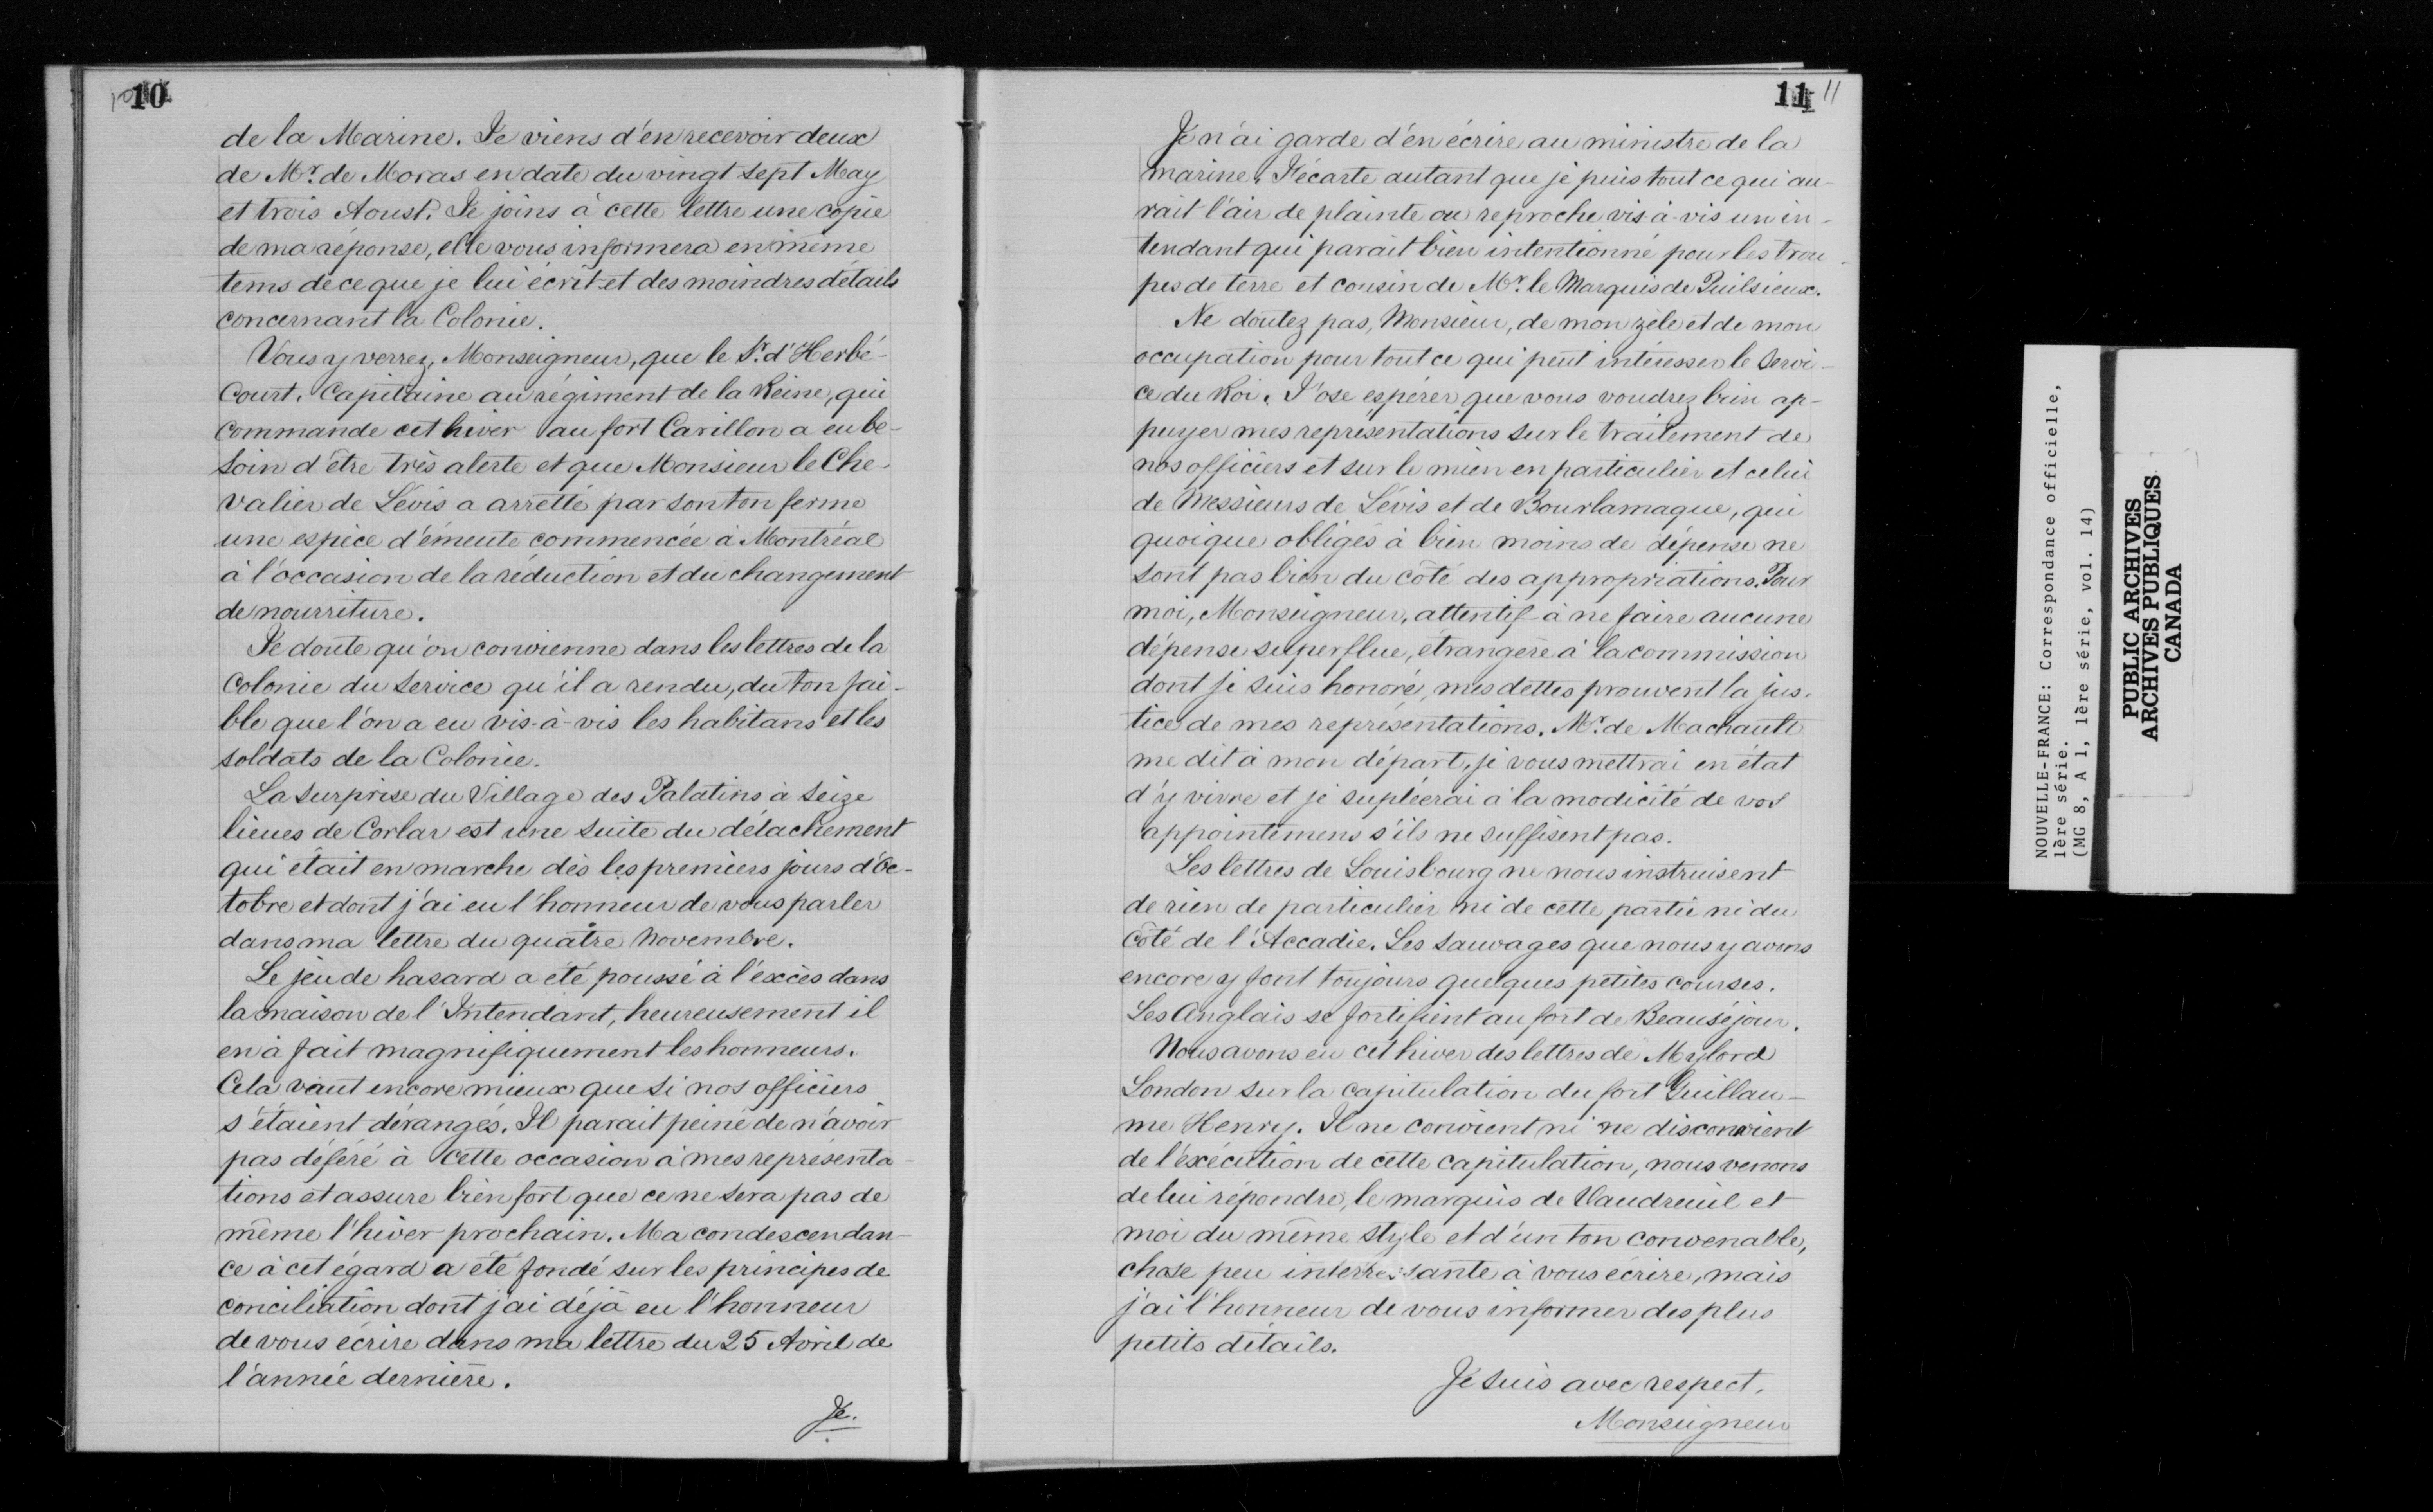 10
de la Marine. Je viens d'en recevoir deux
de Mr. de Moras en date du vingt sept May
et trois Aoust. Je joins à cette lettre une copie
de ma réponse, elle vous informera en même
tems de ce que je lui écrit et des moindres détails
concernant la Colonie.
Vous y verrez, Monseigneur, que le Sr. d'Herbé-
court. Capitaine au régiment de la Reine, qui
commande cet hiver au fort Carillon a eu be-
soin d'être très alerte et que Monsieur le Che-
valier de Lévis a arretté par son ton ferme
une espèce d'émeute commencée à Montréal
à l'occasion de la réduction et du changement
de nourriture.
Je doute qu'on convienne dans les lettres de la
Colonie du service qu'il a rendu, du ton fai-
ble que l'on a eu vis-à-vis les habitans et les
soldats de la Colonie.
La surprise du Village des Palatins à seize
lieues de Corlar est une suite du détachement
qui était en marche dès les premiers jours d'Oc-
tobre et dont j'ai eu l'honneur de vous parler
dans ma lettre du quatre Novembre.
Le jeu de hasard a été poussé à l'excès dans
la maison de l'Intendant, heureusement il
en a fait magnifiquement les honneurs.
Cela vaut encore mieux que si nos officiers
s'étaient dérangés. Il parait peiné de n'avoir
pas déféré à cette occasion à mes représenta-
tions et assure bien fort que ce ne sera pas de
même l'hiver prochain. Ma condescendan-
ce à cet égard a été fondé sur les principes de
conciliation dont j'ai déjà eu l'honneur
de vous écrire dans ma lettre du 25 Avril de
l'année dernière.
Je.
11 11
Je n'ai garde d'en écrire au ministre de la
marine. J'écarte autant que je puis tout ce qui au-
rait l'air de plainte ou reproche vis-à-vis un in-
tendant qui parait bien intentionné pour les trou-
pes de terre et cousin de Mr. le Marquis de Puilsieux.
Ne doutez pas, Monsieur, de mon zèle et de mon
occupation pour tout ce qui peut intéresser le servi-
ce du Roi. J'ose espérer que vous voudrez bien ap-
puyer mes représentations sur le traitement de
nos officiers et sur le mien en particulier et celui
de Messieurs de Lévis et de Bourlamaque, qui
quoique obligés à bien moins de dépense ne
sont pas bien du côté des appropriations. Pour
moi, Monseigneur, attentif à ne faire aucune
dépense superflue, étrangère à la commission
dont je suis honoré, mes dettes prouvent la jus-
tice de mes représentations. Mr. de Machault
me dit à mon départ, je vous mettrai en état
d'y vivre et je supléerai à la modicité de vos
appointemens s'ils ne suffisent pas.
Les lettres de Louisbourg ne nous instruisent
de rien de particulier ni de cette partie ni du
côté de l'Accadie. Les sauvages que nous y avons
encore y font toujours quelques petites courses.
Les Anglais se fortifient au fort de Beauséjour.
Nous avons eu cet hiver des lettres de Mylord
London sur la capitulation du fort Guillau-
me Henry. Il ne convient ni ne disconvient
de l'exécution de cette capitulation, nous venons
de lui répondre, le marquis de Vaudreuil et
moi du même style et d'un ton convenable,
chose peu interressante à vous écrire, mais
j'ai l'honneur de vous informer des plus
petits détails.
Je suis avec respect,
Monseigneur
NOUVELLE-FRANCE: Correspondance officielle,
1ère série.
(MG 8, A 1, 1ère série, vol. 14)
PUBLIC ARCHIVES
ARCHIVES PUBLIQUES
CANADA